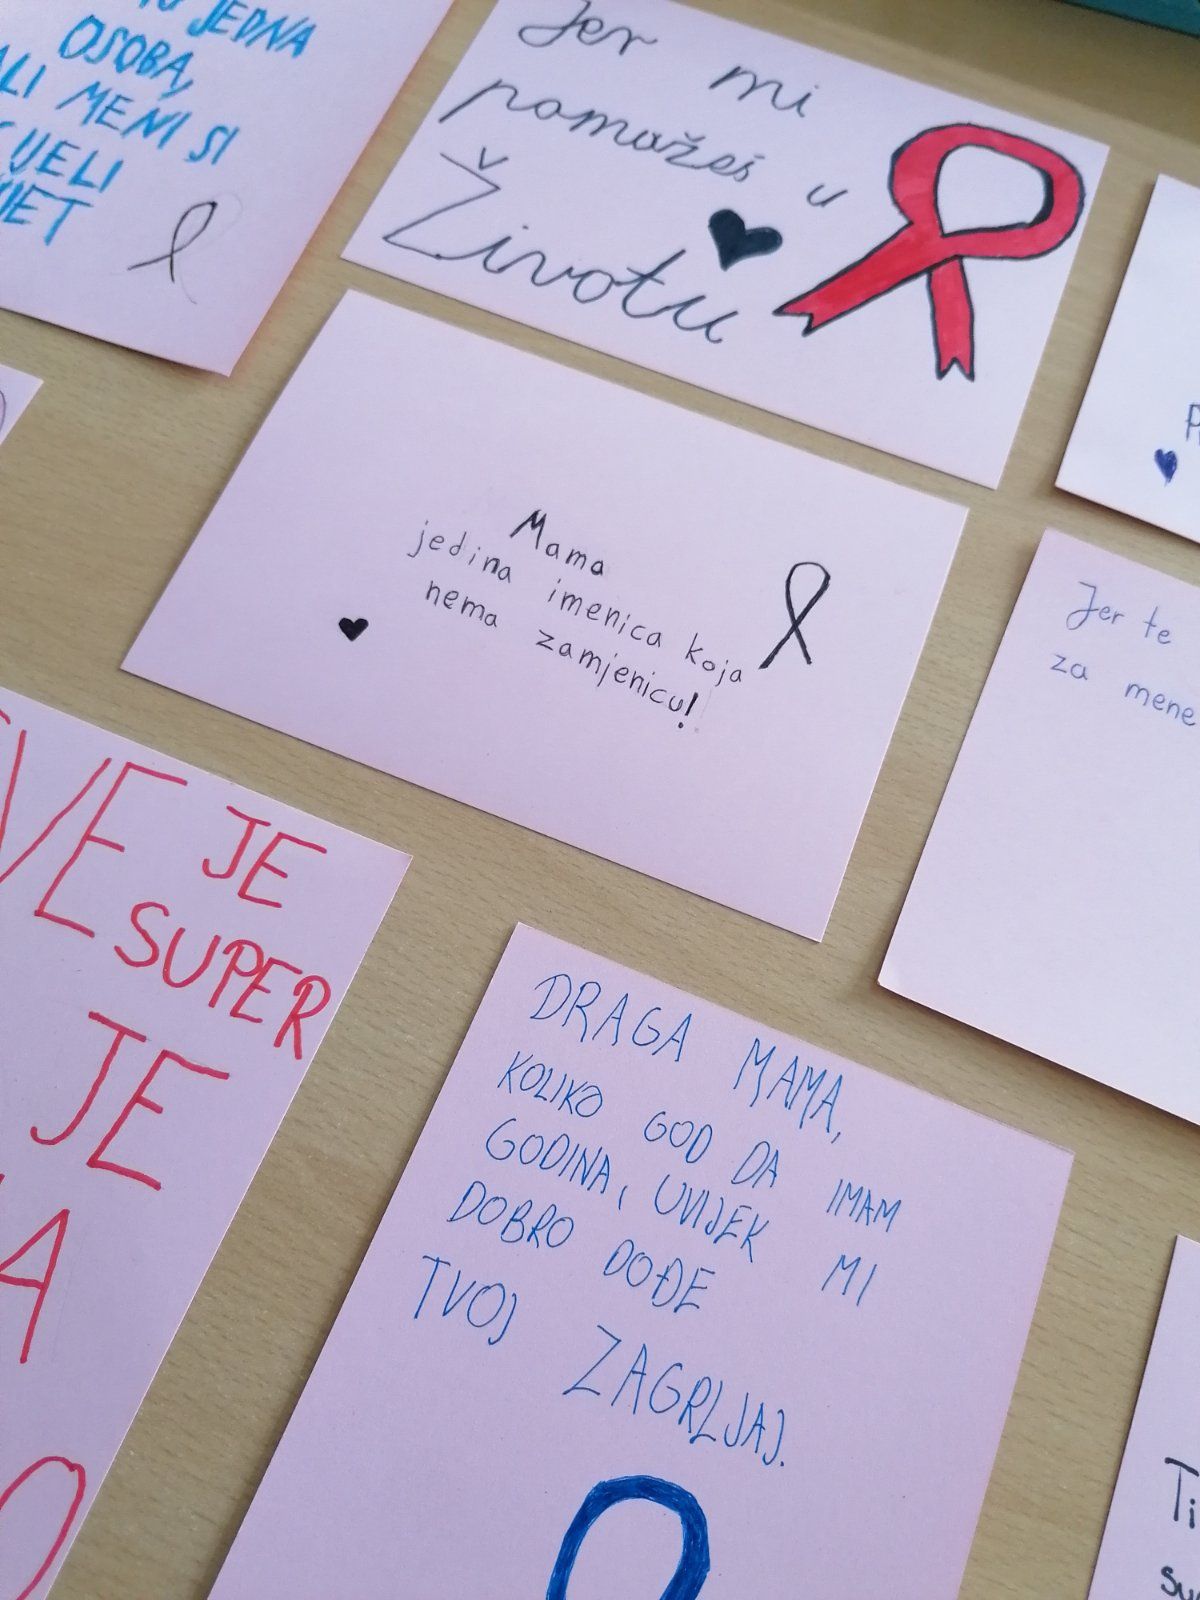 JEDNA
OSOBA,
ALI MENI SI
CIJELI
SVIJET
Jer mi
pomažeš u
Životu
Mama
jedina imenica koja
nema zamjenicu!
Jer te
za mene
JE
SUPER
JE
DRAGA MAMA,
KOLIKO GOD DA IMAM
GODINA, UVIJEK MI
DOBRO DOĐE
TVOJ ZAGRLJAJ.
Ti